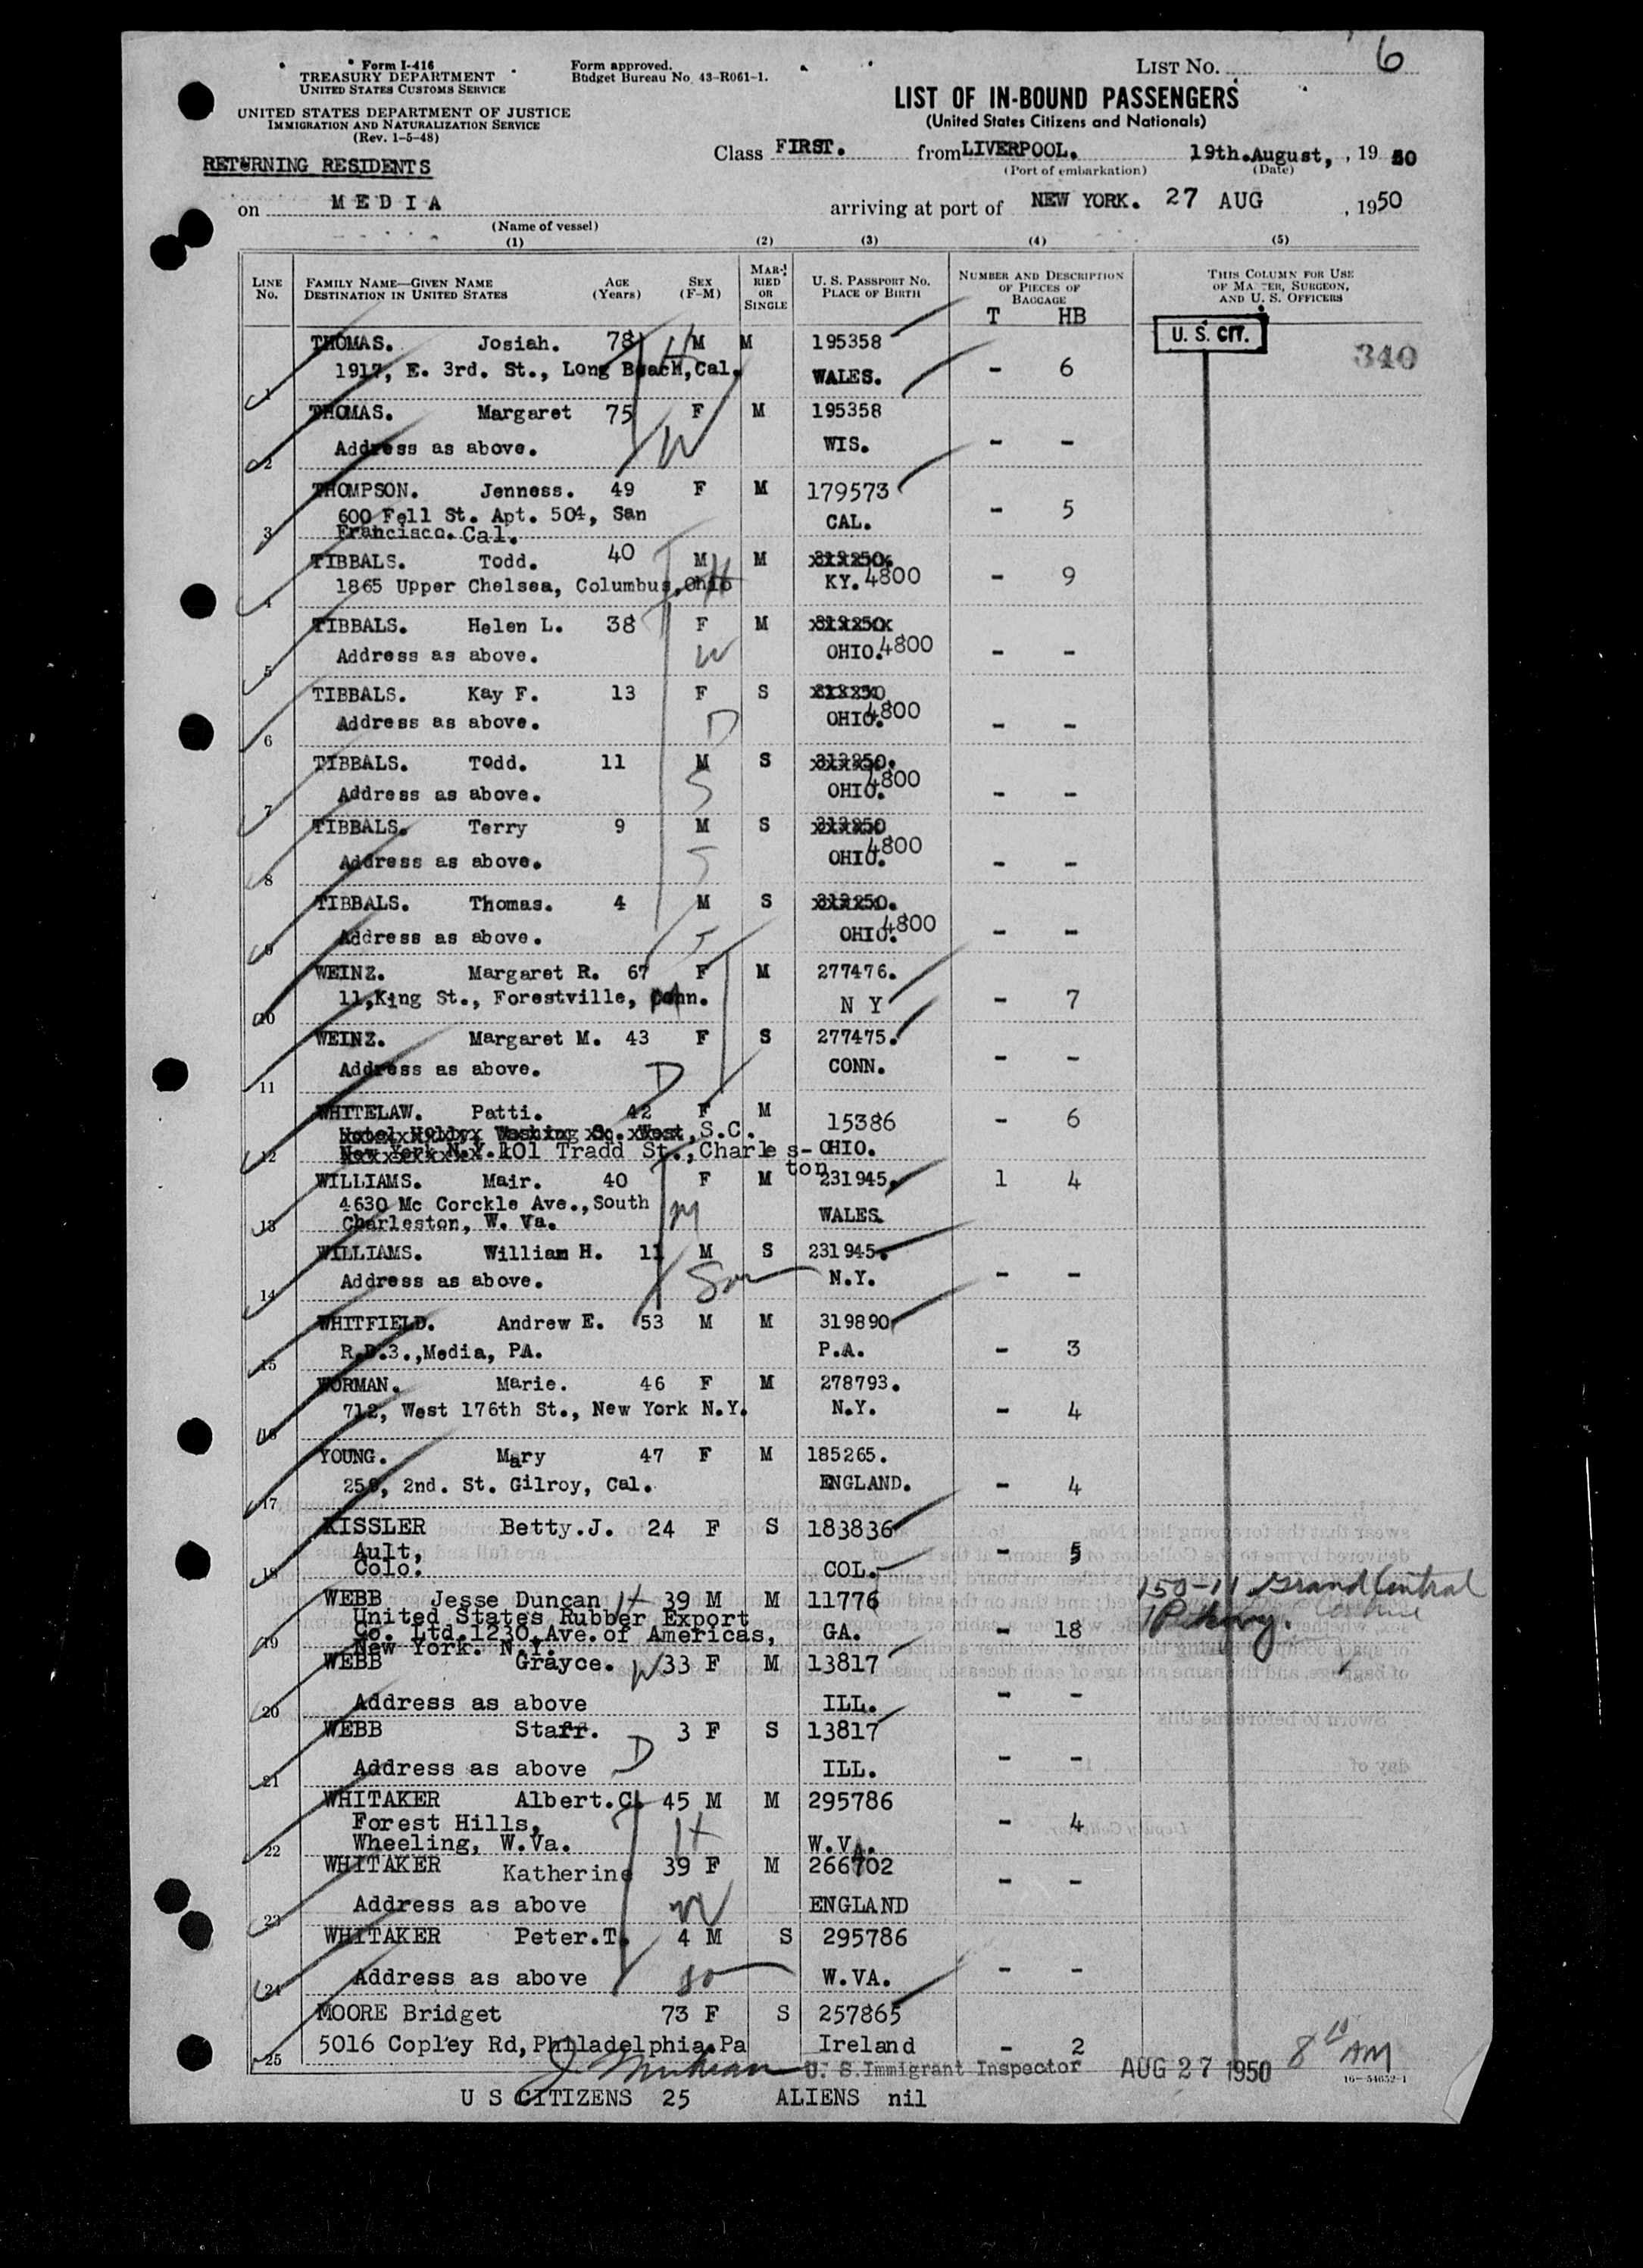 6
Form I-416
TREASURY DEPARTMENT
UNITED STATES CUSTOMS SERVICE
Form approved.
Budget Bureau No. 43-R061-1.
LIST No.
UNITED STATES DEPARTMENT OF JUSTICE
IMMIGRATION AND NATURALIZATION SERVICE
(Rev. 1-5-48)
LIST OF IN-BOUND PASSENGERS
(United States Citizens and Nationals)
RETURNING RESIDENTS
Class FIRST. from LIVERPOOL. 19th.August, , 19 50
(Port of embarkation) (Date)
on MEDIA arriving at port of NEW YORK. 27 AUG , 1950
(Name of vessel)
(1) (2) (3) (4) (5)
LINE No. FAMILY NAME—GIVEN NAME DESTINATION IN UNITED STATES AGE (Years) SEX (F-M) MARRIED OR SINGLE U. S. PASSPORT No. PLACE OF BIRTH NUMBER AND DESCRIPTION OF PIECES OF BAGGAGE THIS COLUMN FOR USE OF MASTER, SURGEON, AND U. S. OFFICERS
T HB
U. S. CIT.
340
THOMAS. Josiah. 78 H M M 195358
1 1917, E. 3rd. St., Long Beach, Cal. WALES. - 6
THOMAS. Margaret 75 F M 195358
2 Address as above. W WIS. - -
THOMPSON. Jenness. 49 F M 179573
600 Fell St. Apt. 504, San - 5
3 Francisco. Cal. CAL.
TIBBALS. Todd. 40 M M 313250.
4 1865 Upper Chelsea, Columbus, Ohio H KY. 4800 - 9
TIBBALS. Helen L. 38 F M 313250
5 Address as above. W OHIO. 4800 - -
TIBBALS. Kay F. 13 F S 313250
6 Address as above. D OHIO. 4800 - -
TIBBALS. Todd. 11 M S 313250.
7 Address as above. S OHIO. 4800 - -
TIBBALS. Terry 9 M S 313250
8 Address as above. S OHIO. 4800 - -
TIBBALS. Thomas. 4 M S 313250.
9 Address as above. S OHIO. 4800 - -
WEINZ. Margaret R. 67 F M 277476.
10 11,King St., Forestville, Conn. N Y - 7
WEINZ. Margaret M. 43 F S 277475.
11 Address as above. D CONN. - -
WHITELAW. Patti. 42 F M 15386 - 6
Hotel Holly Washing Sq. West, S.C.
12 New York N.Y. 101 Tradd St., Charles-ton OHIO.
WILLIAMS. Mair. 40 F M 231945. 1 4
4630 Mc Corckle Ave., South M
13 Charleston, W. Va. WALES.
WILLIAMS. William H. 11 M S 231945.
14 Address as above. Son N.Y. - -
WHITFIELD. Andrew E. 53 M M 319890
15 R.D.3.,Media, PA. P.A. - 3
WORMAN. Marie. 46 F M 278793.
16 712, West 176th St., New York N.Y. N.Y. - 4
YOUNG. Mary 47 F M 185265.
17 259, 2nd. St. Gilroy, Cal. ENGLAND. - 4
KISSLER Betty.J. 24 F S 183836
Ault, - 5
18 Colo. COL.
WEBB Jesse Duncan H 39 M M 11776 150-11 Grand Central
United States Rubber Export Pkwy.
19 Co. Ltd.1230,Ave.of Americas, GA. - 18
New York. N.Y.
WEBB Grayce. W 33 F M 13817
20 Address as above ILL. - -
WEBB Starr. 3 F S 13817
21 Address as above D ILL. - -
WHITAKER Albert.C. 45 M M 295786
Forest Hills, H - 4
22 Wheeling, W.Va. W.VA.
WHITAKER Katherine 39 F M 266702
23 Address as above W ENGLAND - -
WHITAKER Peter.T. 4 M S 295786
24 Address as above so W.VA. - -
MOORE Bridget 73 F S 257865
25 5016 Copley Rd,Philadelphia.Pa Ireland - 2
U. S. Immigrant Inspector AUG 27 1950 8 10 AM
16-54652-1
U S CITIZENS 25 ALIENS nil